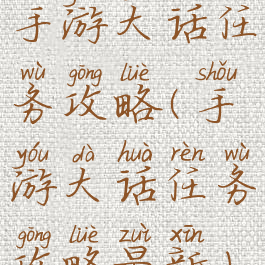 手游大话任
wù gōng lüè shǒu
务攻略(手
yóu dà huà rèn wù
游大话任务
gōng lüè zuì xīn
攻略最新)